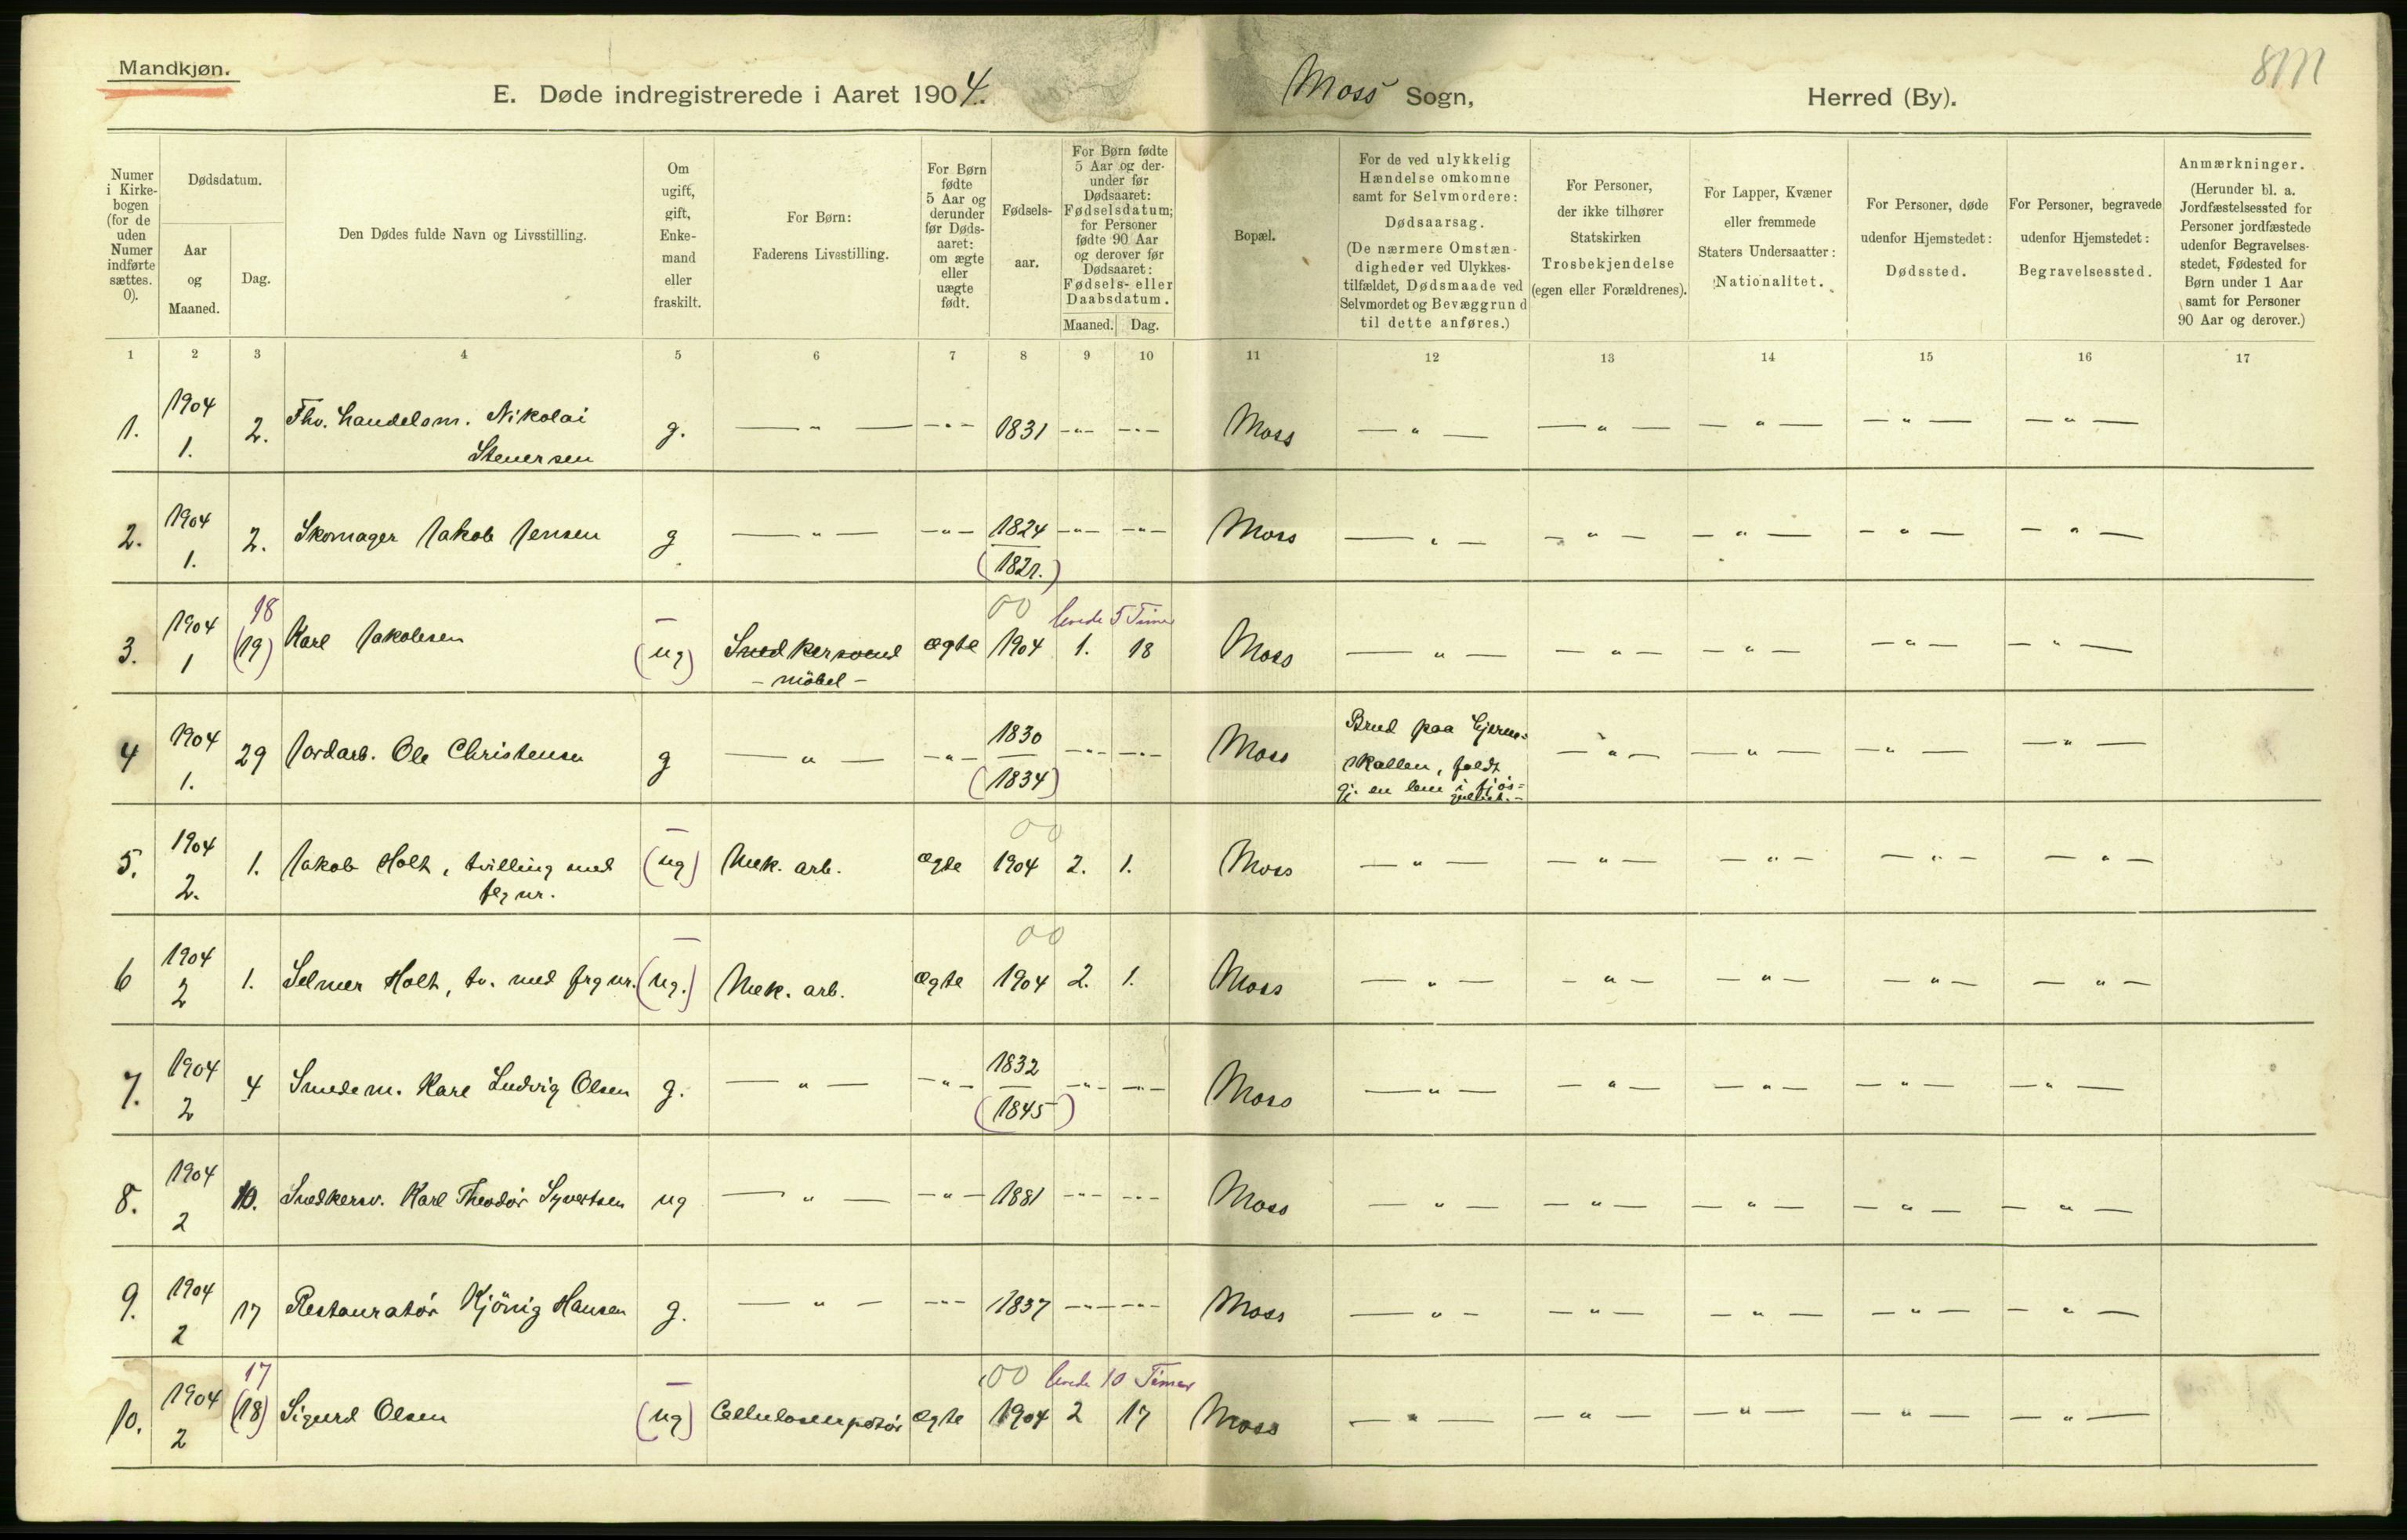 Mandkjøn.
E. Døde indregistrerede i Aaret 1904. Moss Sogn, Herred (By).
8111
Numer i Kirkebogen (for de uden Numer indførte sættes. 0).
Dødsdatum.
Aar og Maaned.
Dag.
Den Dødes fulde Navn og Livsstilling.
Om ugift, gift, Enkemand eller fraskilt.
For Børn: Faderens Livsstilling.
For Børn fødte 5 Aar og derunder før Dødsaaret: om ægte eller uægte født.
Fødselsaar.
For Børn fødte 5 Aar og derunder før Dødsaaret: Fødselsdatum; for Personer fødte 90 Aar og derover før Dødsaaret: Fødsels- eller Daabsdatum.
Maaned. Dag.
Bopæl.
For de ved ulykkelig Hændelse omkomne samt for Selvmordere: Dødsaarsag. (De nærmere Omstændigheder ved Ulykkestilfældet, Dødsmaade ved Selvmordet og Bevæggrund til dette anføres.)
For Personer, der ikke tilhører Statskirken Trosbekjendelse (egen eller Forældrenes).
For Lapper, Kvæner eller fremmede Staters Undersaatter: Nationalitet.
For Personer, døde udenfor Hjemstedet: Dødssted.
For Personer, begravede udenfor Hjemstedet: Begravelsessted.
Anmærkninger. (Herunder bl. a. Jordfæstelsessted for Personer jordfæstede udenfor Begravelsesstedet, Fødested for Børn under 1 Aar samt for Personer 90 Aar og derover.)
1 2 3 4 5 6 7 8 9 10 11 12 13 14 15 16 17
1. 1904 1. 2. Fhv. handelsm. Nikolai Stenersen g. — " — — " — 1831 — " — — " — Moss — " — — " — — " — — " — — " —
2. 1904 1. 2. Skomager Jakob Jensen g — " — — " — 1824 (1821.) — " — — " — Moss — " — — " — — " — — " — — " —
3. 1904 1 18 (19) Karl Jakobsen — (ug) Snedkersvend - möbel - ægte 00 1904 levede 5 Timer 1. 18 Moss — " — — " — — " — — " — — " —
4 1904 1. 29 Jordarb. Ole Christensen g — " — — " — 1830 (1834) — " — — " — Moss Brud paa hjerneskallen, faldt gj. en lem i fjös= — " — — " — — " — — " —
5. 1904 2. 1. Jakob Holt, tvilling med flg nr. — (ug) Mek. arb. ægte 00 1904 2. 1. Moss — " — — " — — " — — " — — " —
6 1904 2 1. Selmer Holt, tv. med frg nr. — (ug.) Mek. arb. ægte 00 1904 2. 1. Moss — " — — " — — " — — " — — " —
7. 1904 2 4 Smedem. Karl Ludvig Olsen g. — " — — " — 1832 (1845) — " — — " — Moss — " — — " — — " — — " — — " —
8. 1904 2 10. Snedkersv. Karl Theodor Syvertsen ug — " — — " — 1881 — " — — " — Moss — " — — " — — " — — " — — " —
9. 1904 2 17 Restauratör Kjönig Hansen g. — " — — " — 1837 — " — — " — Moss — " — — " — — " — — " — — " —
10. 1904 2 17 (18) Sigurd Olsen — (ug) ægte 00 1904 levede 10 Timer 2 17 Moss — " — — " — — " — — " — — " —